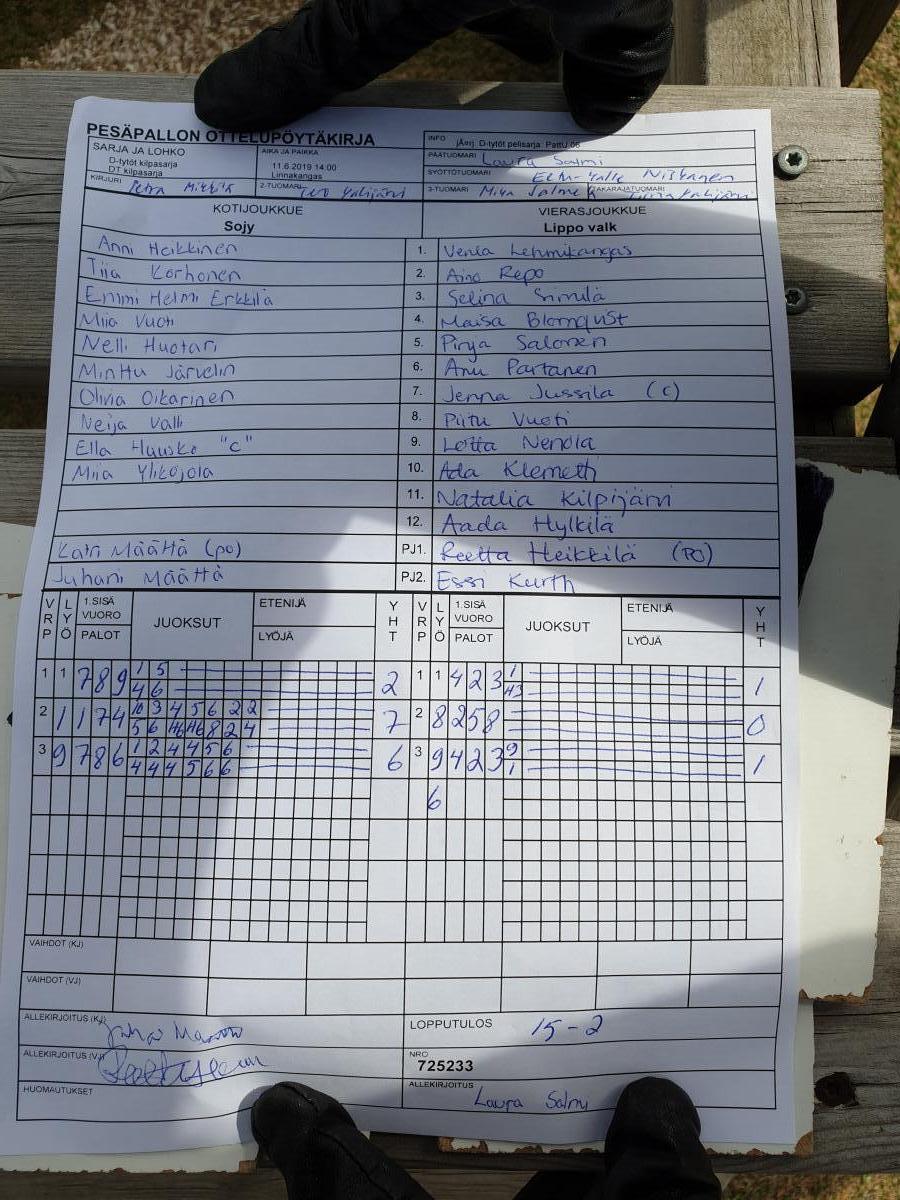 PESÄPALLON OTTELUPÖYTÄKIRJA
SARJA JA LOHKO
D-tytöt kilpasarja
DT kilpasarja
AIKA JA PAIKKA
11.6.2019 14:00
Linnakangas
INFO jÄrj. D-tytöt pelisarja: Pattu 06
PÄÄTUOMARI Laura Salmi
SYÖTTÖTUOMARI Eetu-Kalle Niskanen
KIRJURI Petra
2-TUOMARI Ylijärvi
3-TUOMARI Miia TAKARAJATUOMARI
KOTIJOUKKUE VIERASJOUKKUE
Sojy Lippo valk
Anni Heikkinen 1. Venla Lehmikangas
Tiia Korhonen 2. Aino Repo
Emmi Helmi Erkkilä 3. Selina Simula
Miia Vuoti 4. Maisa Blomqvist
Nelli Huotari 5. Pinja Salonen
Minttu Järvelin 6. Anu Partanen
Olivia Oikarinen 7. Jenna Jussila (c)
Neija Valli 8. Piitu Vuoti
Ella Hyuske "c" 9. Lotta Nenola
Miia Ylikojola 10. Ada Klemetti
11. Natalia Kilpijärvi
12. Aada Hylkilä
Katri Määttä (po) PJ1. Reetta Heikkilä (PO)
Juhani Määttä PJ2. Essi Kurth
VRP LYÖ 1.SISÄ VUORO PALOT JUOKSUT ETENIJÄ LYÖJÄ YHT VRP LYÖ 1.SISÄ VUORO PALOT JUOKSUT ETENIJÄ LYÖJÄ YHT
1 1 7 8 9 1 5 2 1 1 4 2 3 1 1
4 6 43
2 1 1 7 4 10 3 4 5 6 2 2 7 2 8 2 5 8 0
5 6 8 2 4
3 9 7 8 6 1 2 4 4 5 6 6 3 9 4 2 3 9 1
4 4 4 5 6 6 1
6
VAIHDOT (KJ)
VAIHDOT (VJ)
ALLEKIRJOITUS (KJ)
LOPPUTULOS 15-2
ALLEKIRJOITUS (VJ)
NRO
725233
HUOMAUTUKSET
ALLEKIRJOITUS
Laura Salmi